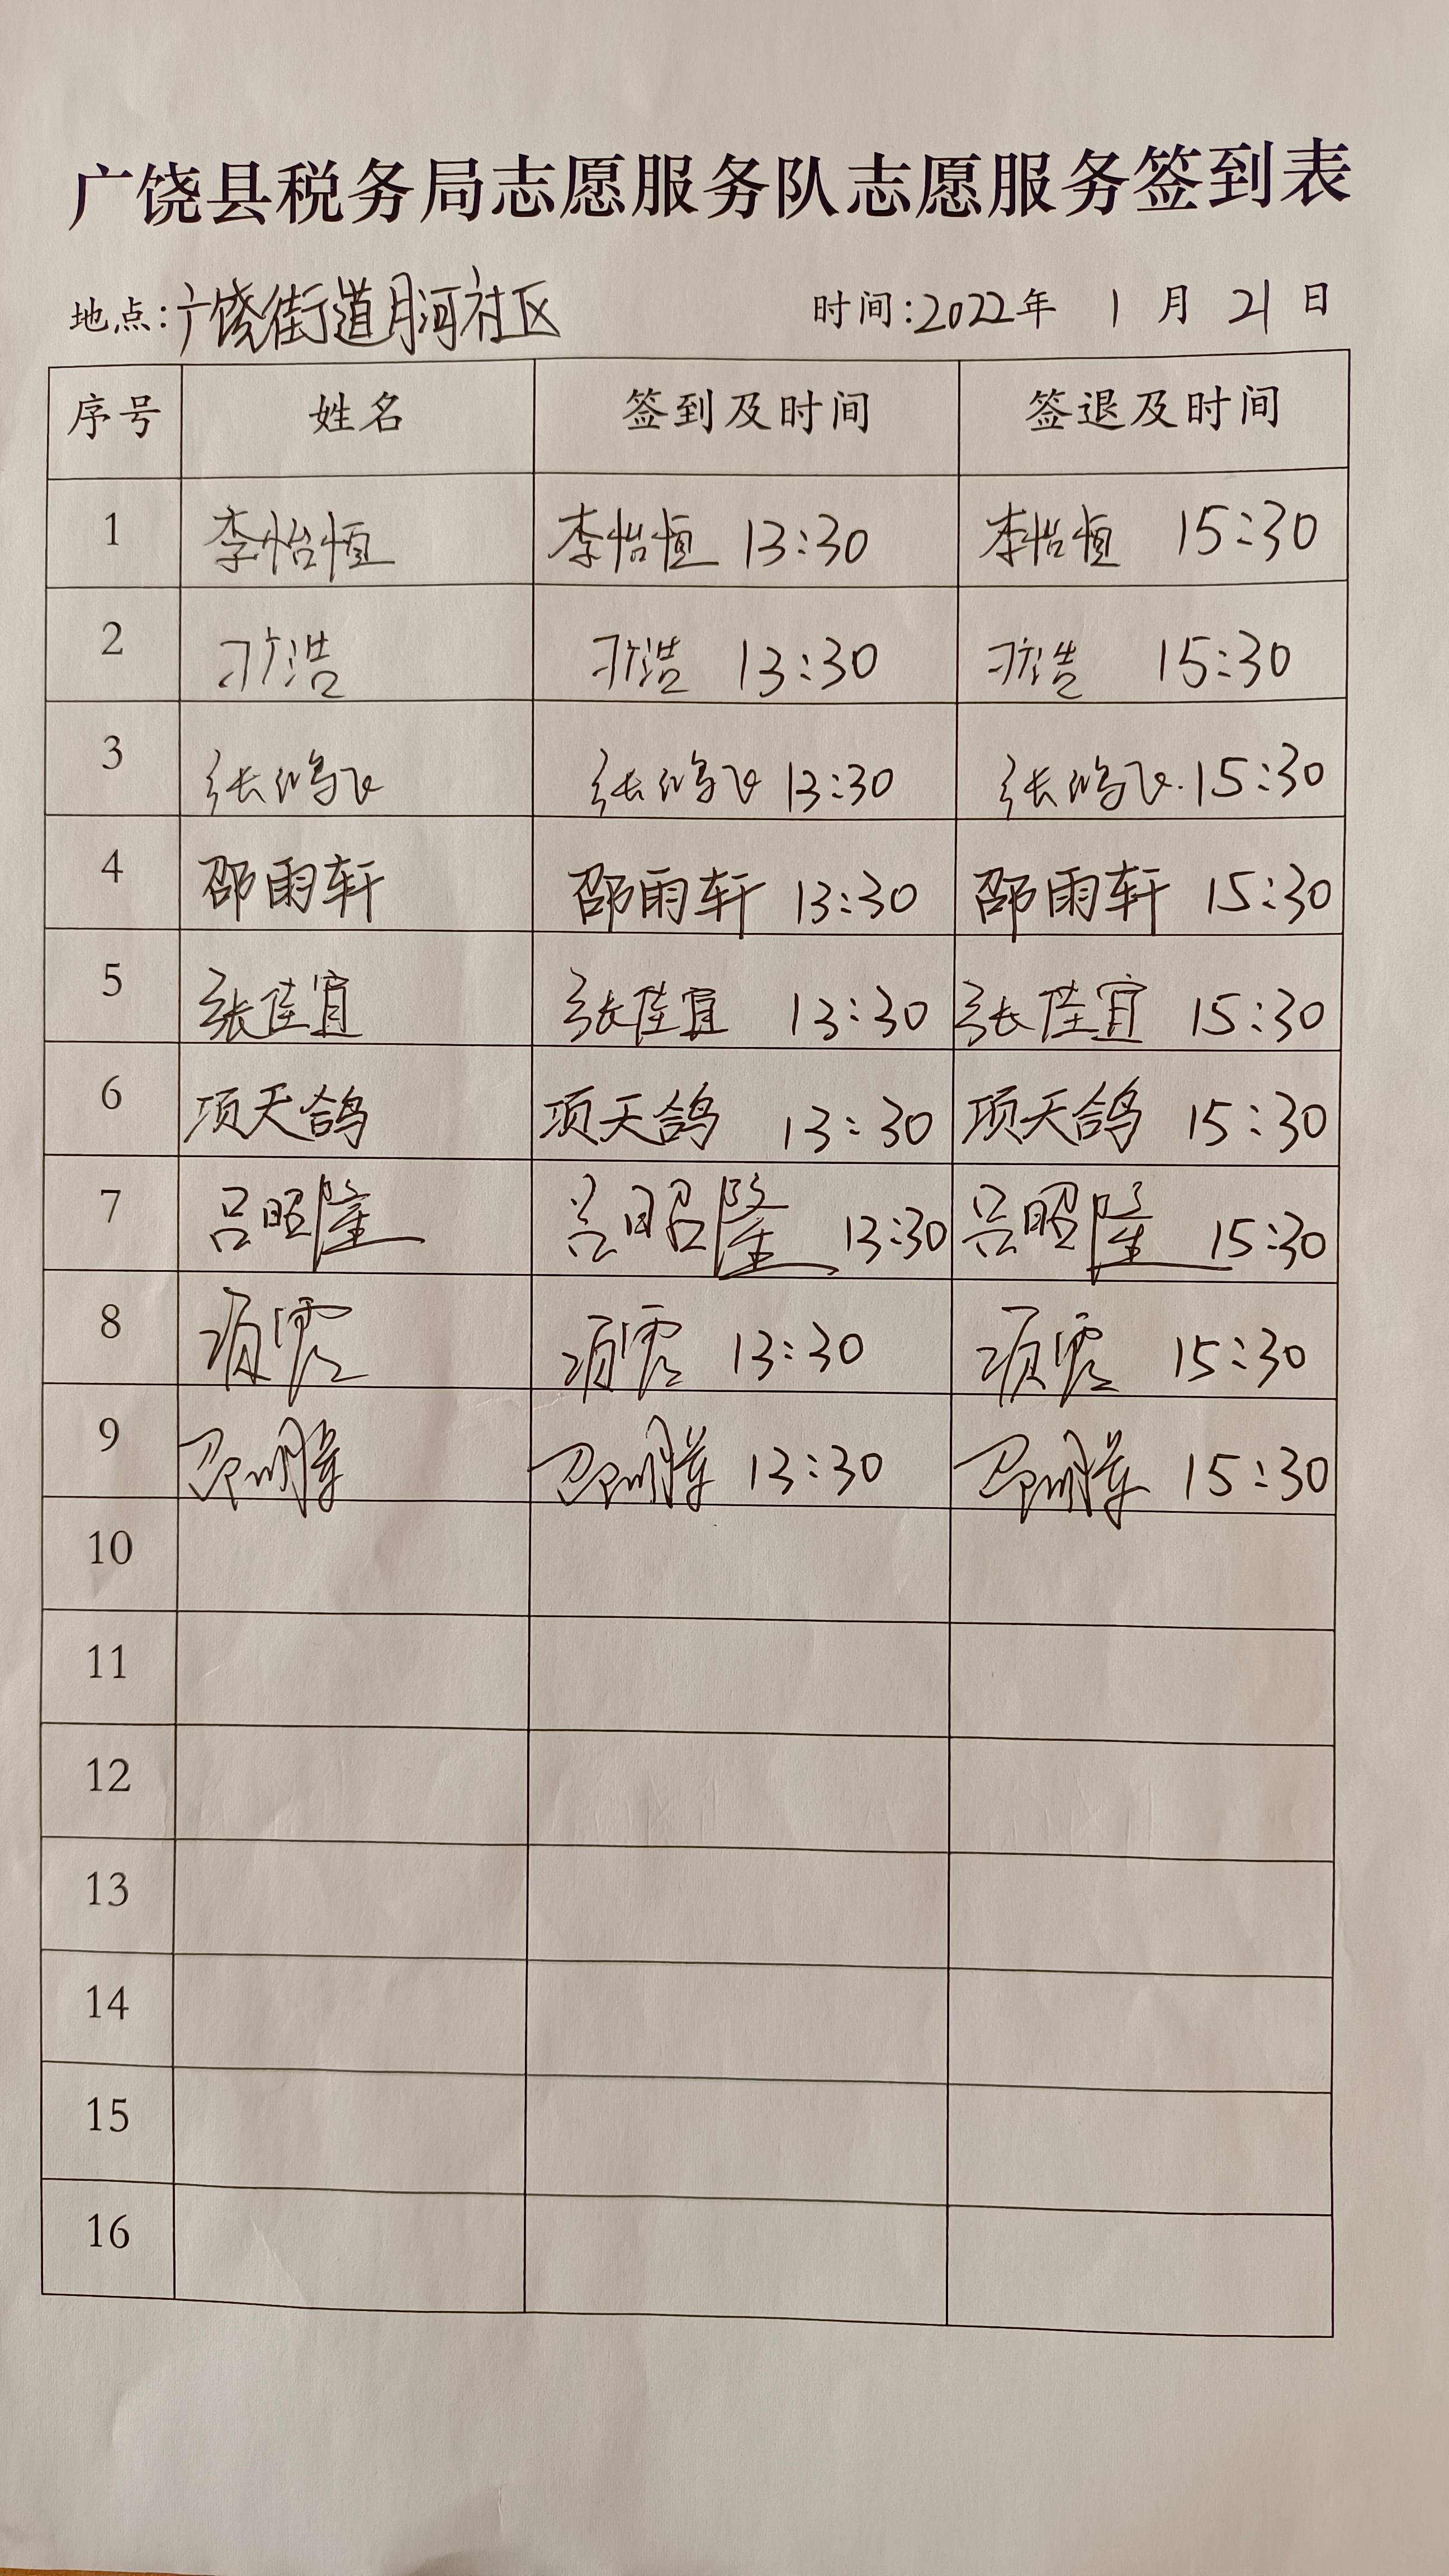 广饶县税务局志愿服务队志愿服务签到表
地点:广饶街道月河社区 时间:2022年 1 月 21 日
序号 姓名 签到及时间 签退及时间
1 李怡恒 李怡恒 13:30 李怡恒 15:30
2 浩 浩 13:30 浩 15:30
3 张鸿飞 张鸿飞 13:30 张鸿飞 15:30
4 邵雨轩 邵雨轩 13:30 邵雨轩 15:30
5 张佳宜 张佳宜 13:30 张佳宜 15:30
6 项天鸽 项天鸽 13:30 项天鸽 15:30
7 吕昭隆 吕昭隆 13:30 吕昭隆 15:30
8 项 项 13:30 项 15:30
9 13:30 15:30
10
11
12
13
14
15
16